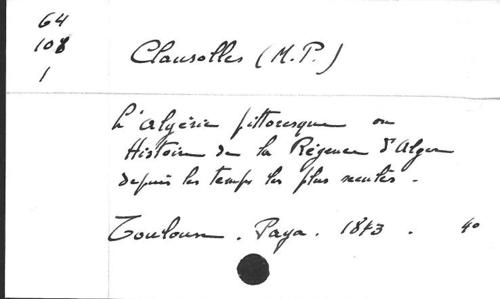 64
108
1
Clausolles (M.P.)
L'Algérie pittoresque ou
Histoire de la Régence d'Alger
depuis les temps les plus reculés.
Toulouse. Paya. 1843. 4°